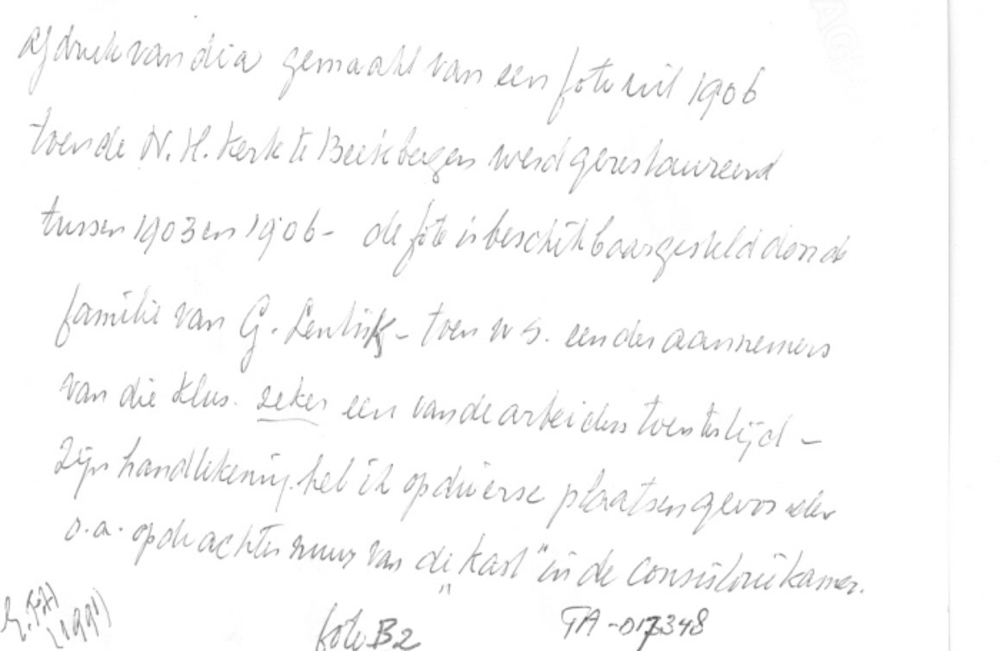 afdruk van dia gemaakt van een foto uit 1906
toen de N.H. Kerk te Beekbergen werd gerestaureerd
tussen 1903 en 1906 - de foto is beschikbaar gesteld door de
familie van G. - toen w.s. een der aannemers
van die klus. zeker een van de arbeiders toentertijd -
Zijn handtekening heb ik op diverse plaatsen gevonden
o.a. op de achtermuur van de "kast" in de consistoriekamer.
(1991)
foto B2
TA-017348